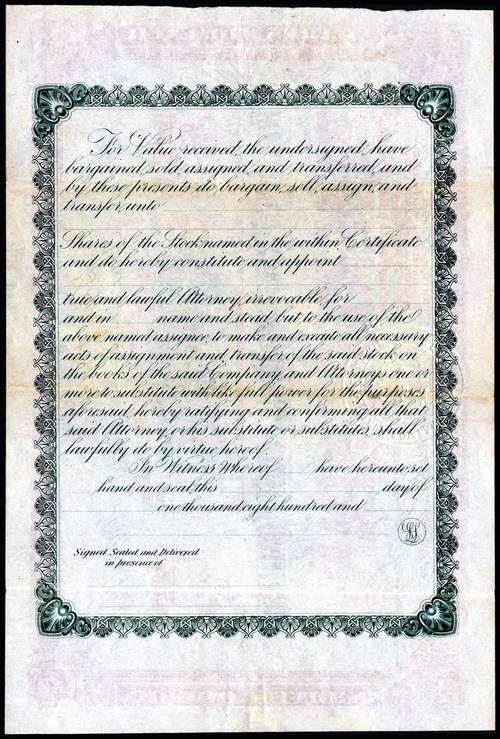 For Value received, the undersigned, have
bargained, sold, assigned, and transferred, and
by these presents do bargain, sell, assign, and
transfer, unto
Shares of the Stock named in the within Certificate
and do hereby constitute and appoint
true and lawful Attorney, irrevocable, for
and in name and stead, but to the use of the
above named assignee, to make and execute all necessary
acts of assignment and, transfer of the said stock on
the books of the said Company, and Attorneys one or
more to substitute with like full power for the purposes
aforesaid, hereby ratifying and confirming all that
said Attorney, or his substitute or substitutes, shall
lawfully do by virtue hereof.
In Witness Whereof have hereunto set
hand and seal, this day of
one thousand eight hundred and
LS
Signed, Sealed, and Delivered
in presence of